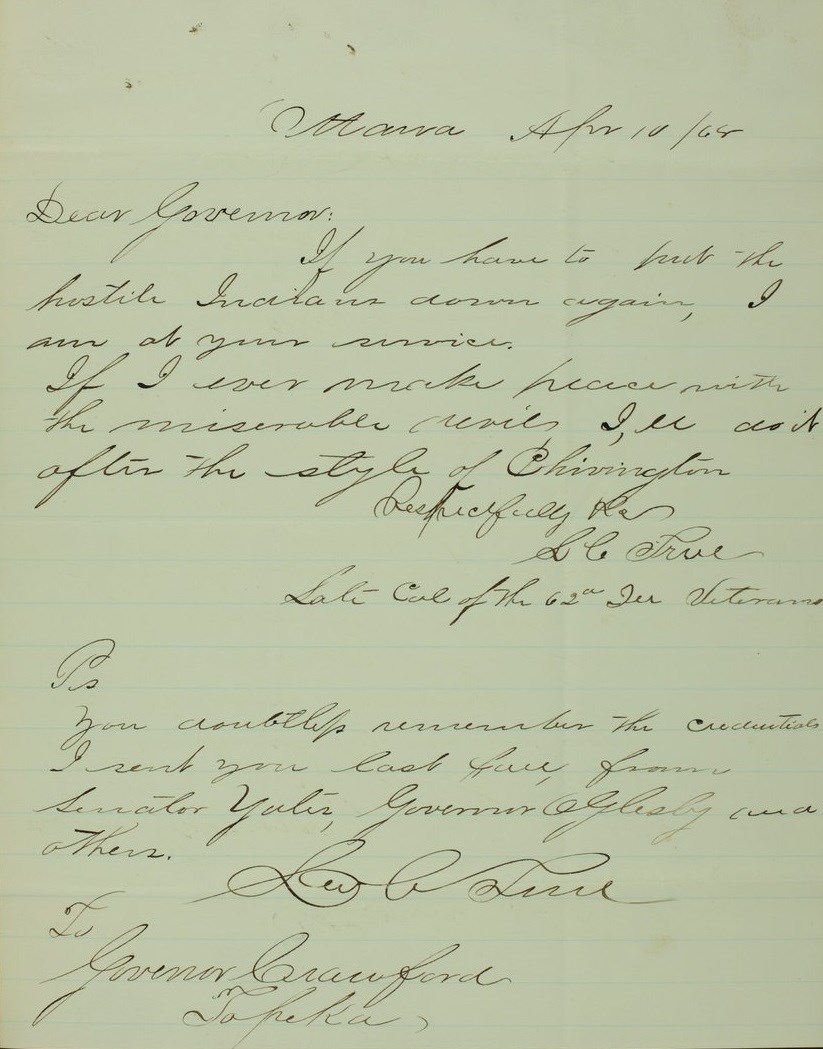 Apr 10 /68
Dear Governor:
If you have to put the
hostile Indians down again, I
am at your service.
If I ever make peace with
the miserable devils, I,ll do it
after the style of Chivington
Respectfully &c
L C True
Late Col of the 62nd Ill Veterans
Ps
You doubtless remember the credentials
I sent you last fall, from
Senator Yates, Governor Oglesby and
others.
Lew C True
To
Govenor Crawford
Topeka